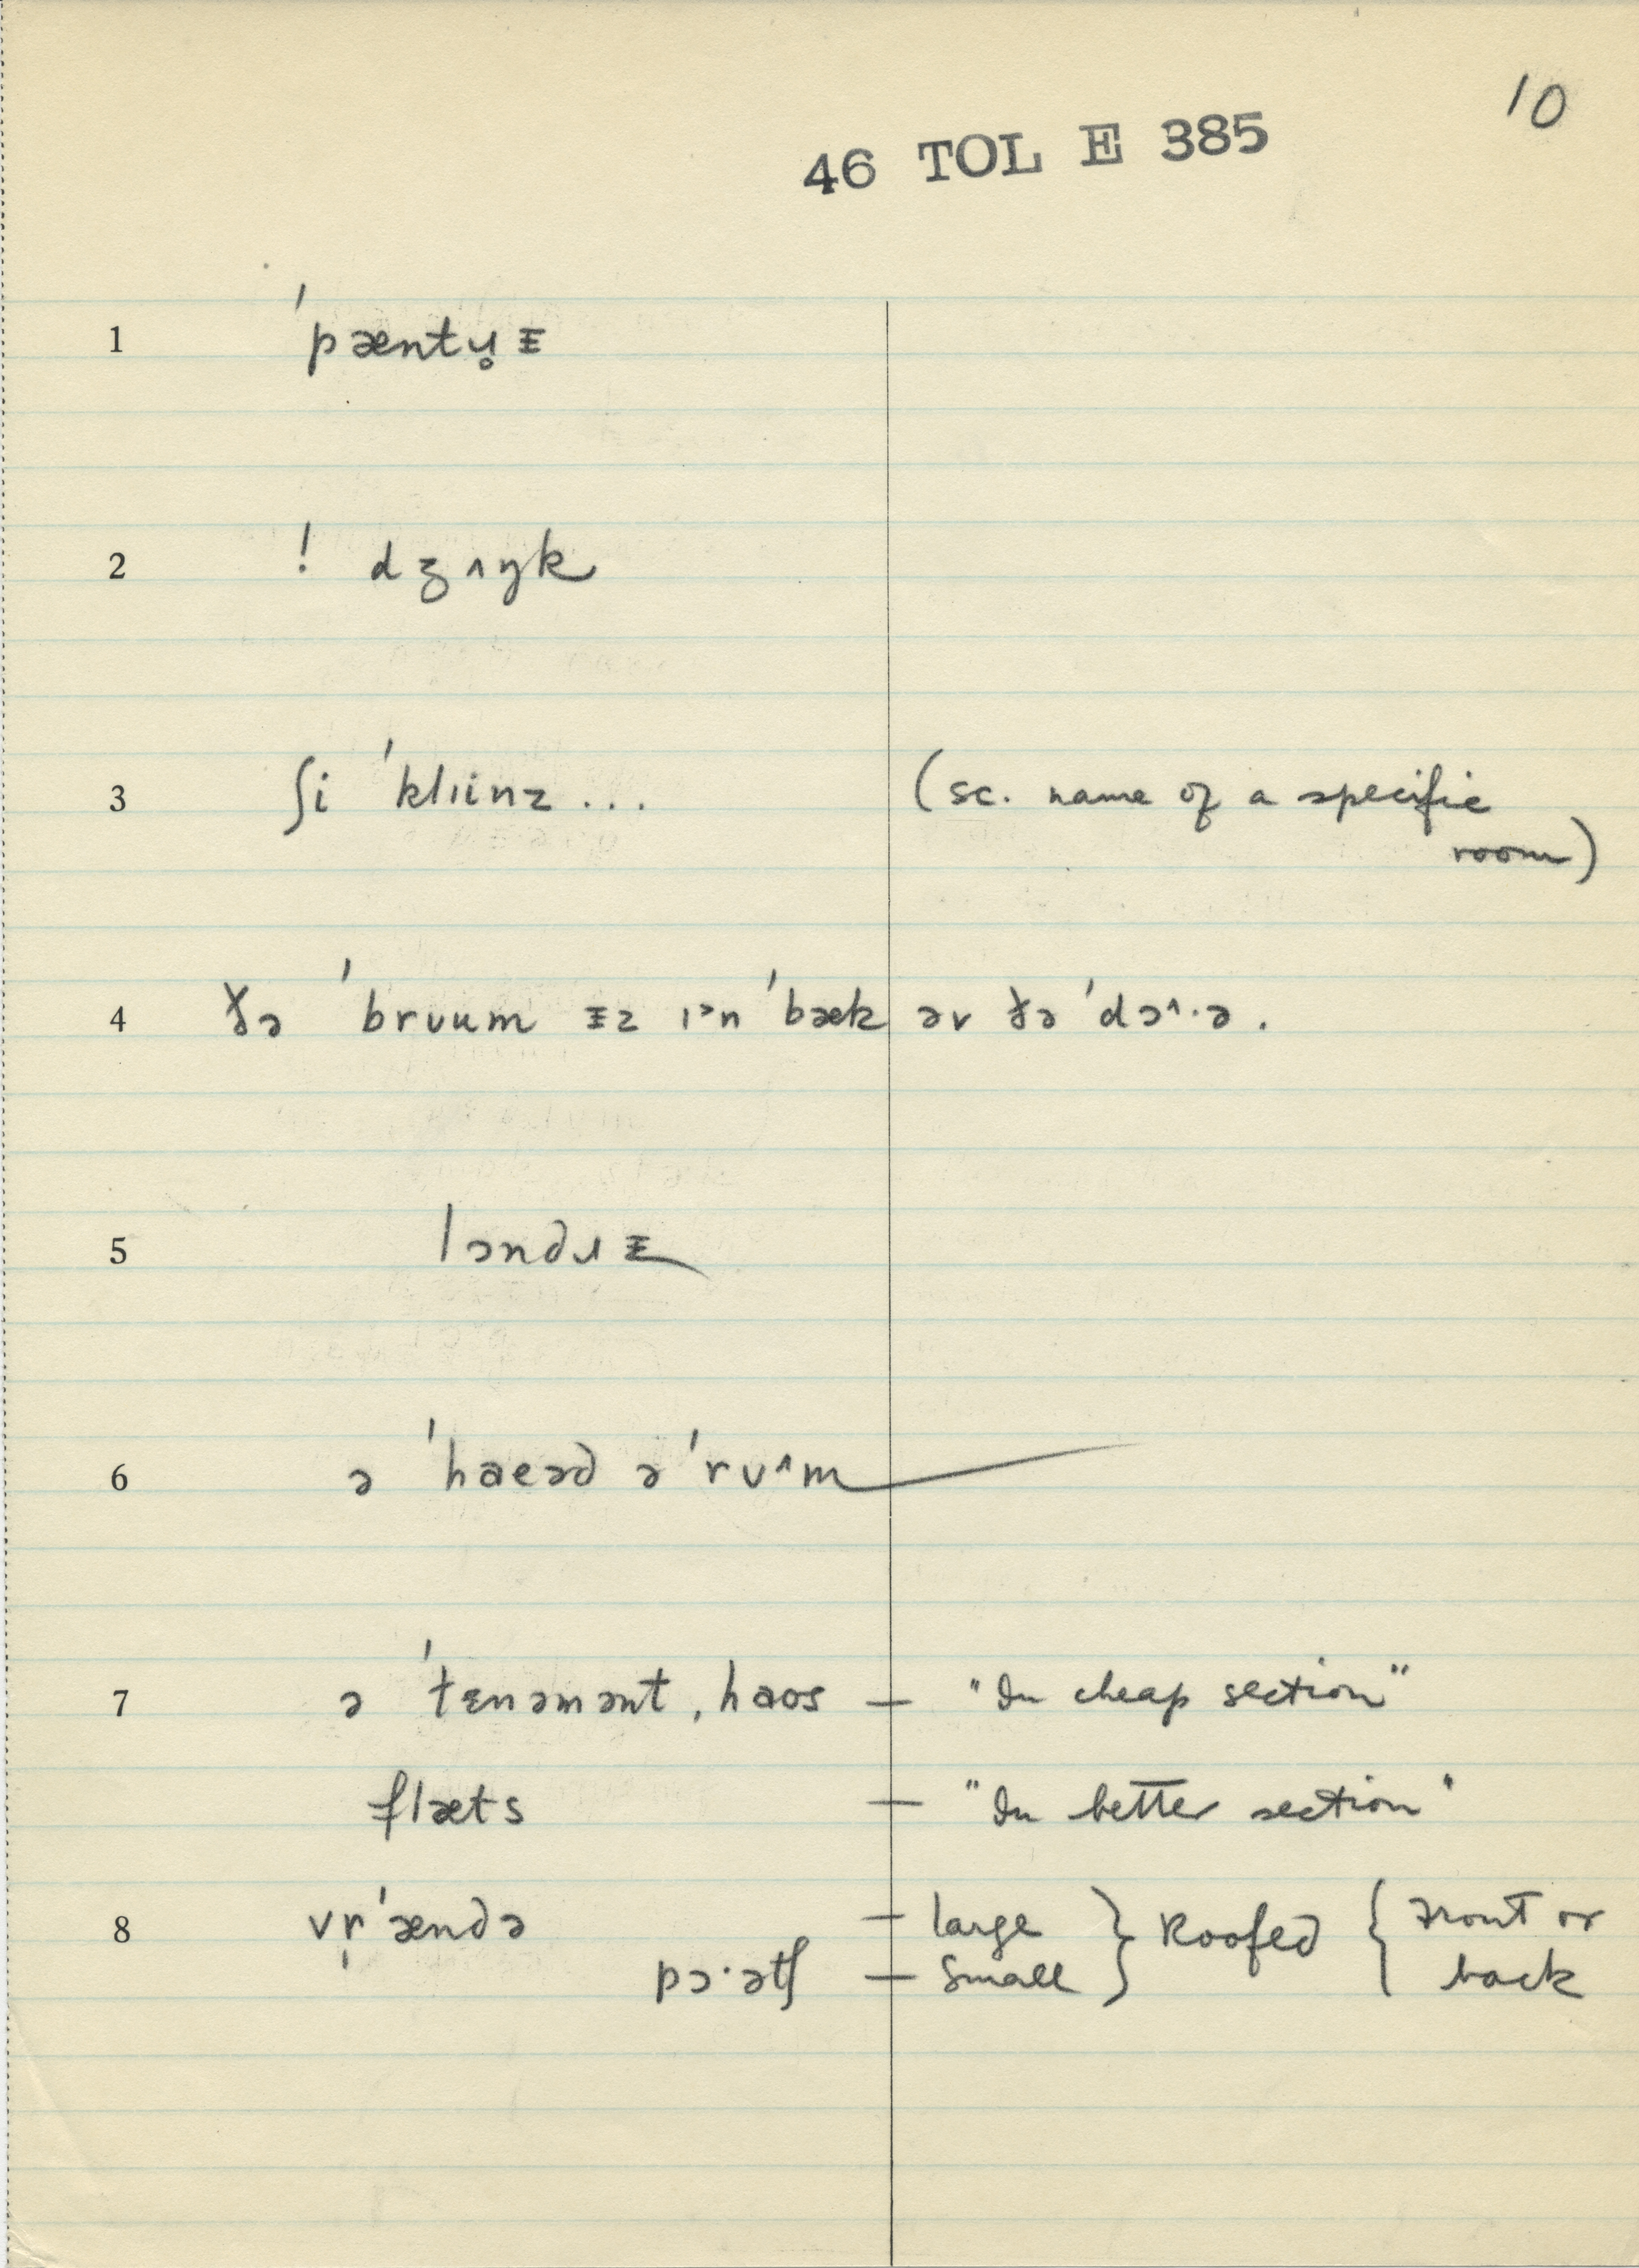 10
46 TOL E 385
1 ˈpæntɹ̥ᵻ
2 ! dʒʌŋk
3 ʃi ˈklɪinz ... (sc. name of a specific
room)
4 ðə ˈbrʊum ᵻz ɪ˃n ˈbæk əv ðə ˈdɔ˄·ə .
5 lɔndɹᵻ
6 ə ˈhaeəd ə ˈrʊ˄m
7 ə ˈtɛnəmənt ˌhaos — "In cheap section"
flæts — "In better section"
8 vr̩ˈændə — large } Roofed { Front or
pɔ·ətʃ — small } back